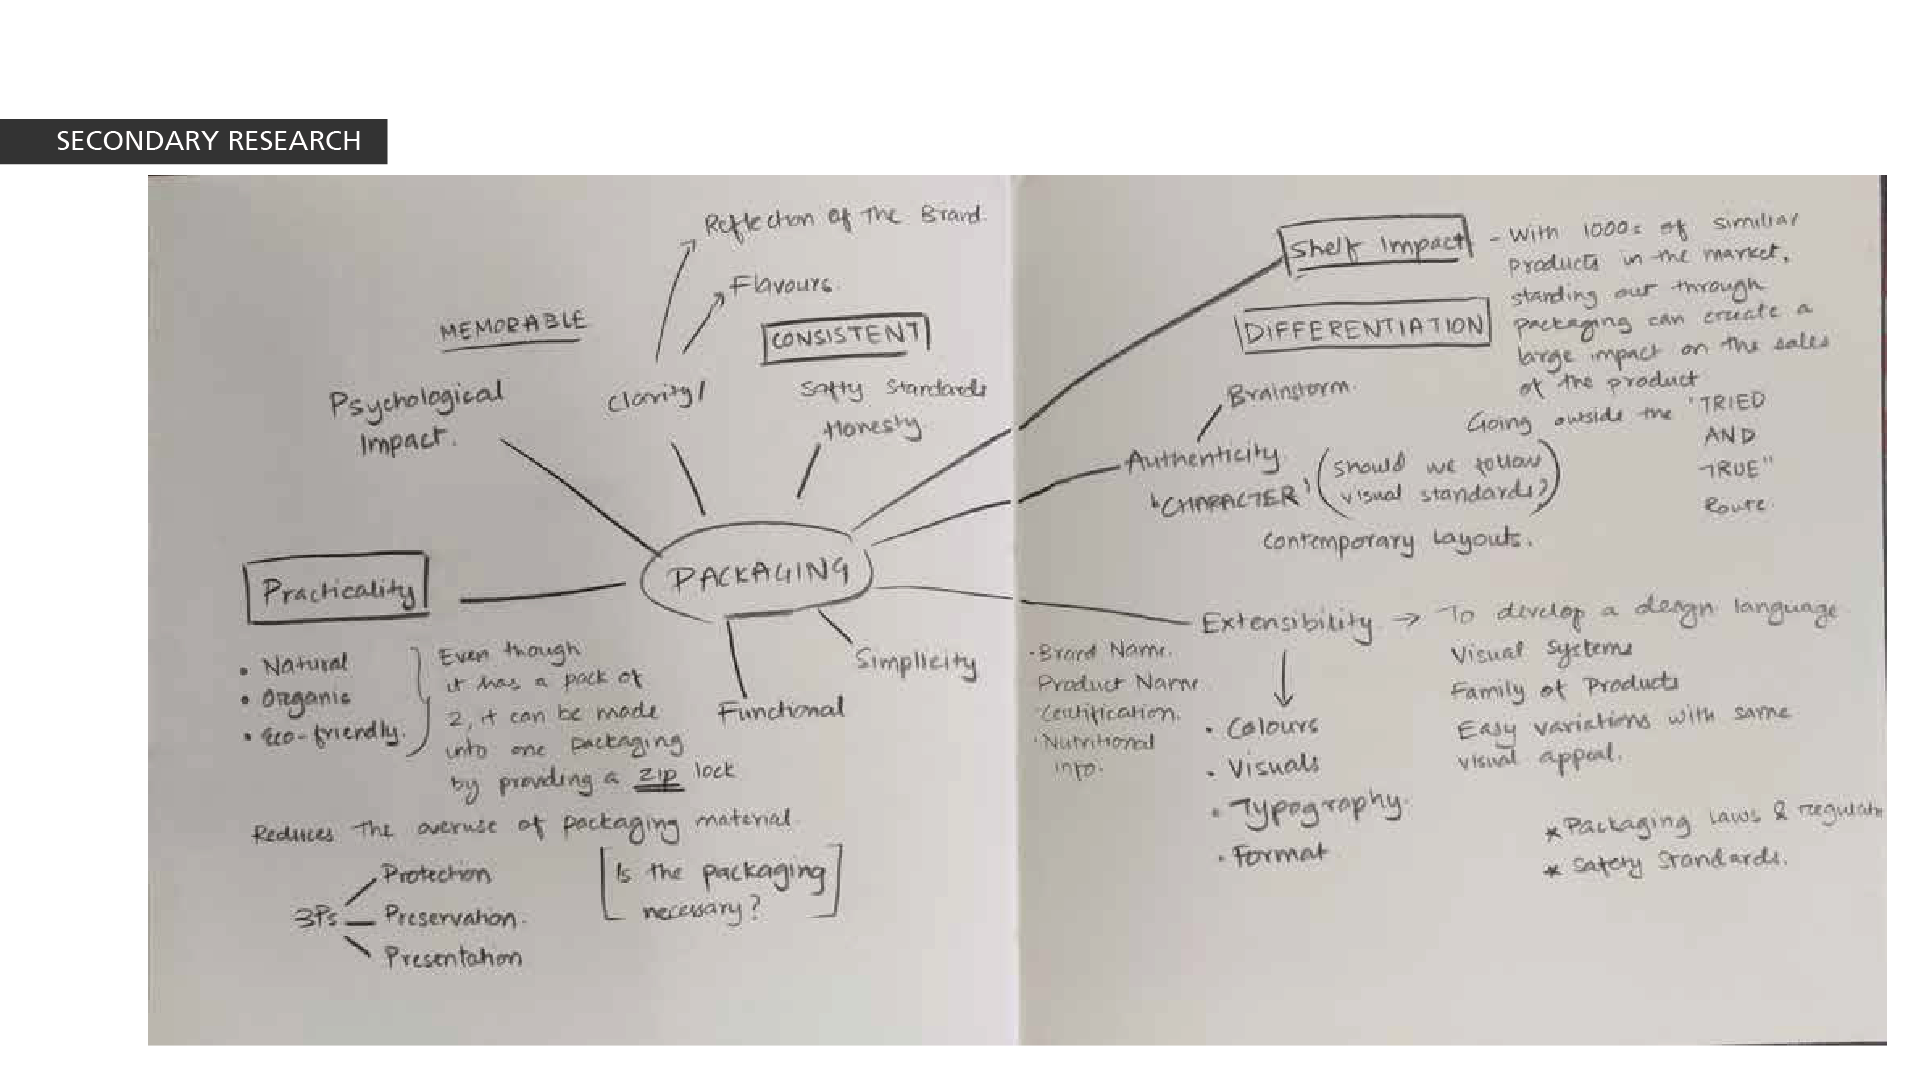 SECONDARY RESEARCH
Reflection of The Brand.
Flavours.
MEMORABLE
CONSISTENT
Psychological
Impact.
Clarity/
Safty Standards
Honesty.
PACKAGING
Practicality
• Natural
• Organic
• Eco-friendly.
Even though
it has a pack of
2, it can be made
into one packaging
by providing a zip lock
Reduces The overuse of packaging material.
Functional
Simplicity
3Ps
Protection
Preservation.
Presentation
Is the packaging
necessary?
Shelf Impact
- With 1000s of similiar
products in the market,
standing out through
packaging can create a
large impact on the sales
of the product
DIFFERENTIATION
Brainstorm.
Going outside the "TRIED
AND
TRUE"
Route.
Authenticity.
'CHARACTER'
(Should we follow
visual standards?)
Contemporary Layouts.
Extensibility → To develop a design language
Visual Systems
Family of Products
Easy variations with same
visual appeal.
• Brand Name.
Product Name
• Certification.
• Nutritional
info.
• Colours
• Visuals
• Typography.
• Format
* Packaging Laws & regulatn
* Safety Standards.